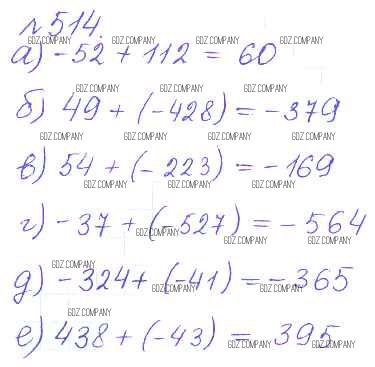 №514.
а) -52 + 112 = 60
GDZ.COMPANY GDZ.COMPANY GDZ.COMPANY GDZ.COMPANY
GDZ.COMPANY GDZ.COMPANY GDZ.COMPANY
б) 49 + (-428) = -379
GDZ.COMPANY GDZ.COMPANY GDZ.COMPANY GDZ.COMPANY
в) 54 + (-223) = -169
GDZ.COMPANY GDZ.COMPANY GDZ.COMPANY
г) -37 + (-527) = -564
GDZ.COMPANY
GDZ.COMPANY GDZ.COMPANY
GDZ.COMPANY
д) -324 + (-41) = -365
GDZ.COMPANY GDZ.COMPANY
GDZ.COMPANY
е) 438 + (-43) = 395
GDZ.COMPANY GDZ.COMPANY